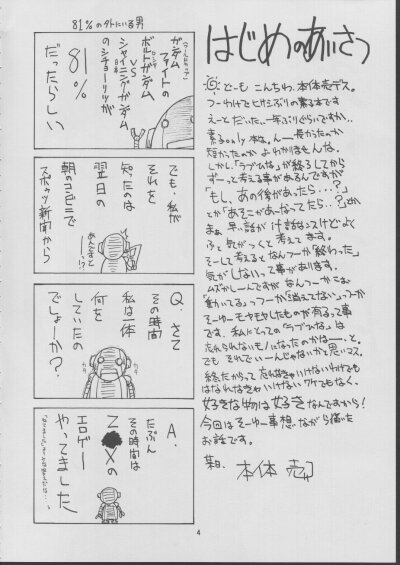 はじめのあいさつ
どーも こんちわ、本体売デス。
つーわけでヒサシぶりの素子本です
えーと だいたい、一年ぶりぐらいですか…
素子only本は。んー長かったのか
短かったのか よくわかりませんな。
しかし「ラブひな」が終了してから
ずーっと考える事があるんですが
「もし、あの後があったら…？」
とか「あそこがあーなってたら…？」とか
ふと気がつくと 考えてます。
そーして考えると なんつーか「終わった」
気がしないって事があります。
ムズかしーんですが なんつーかこー
「動いてる」っつーか「消えてない」っつーか
そーゆーモヤモヤしたものが有るって事
です、私にとっての「ラブひな」は
忘れられないモノになったのかなー…と。
でも それでいーんじゃないかと思いマス。
終わたからって 忘れなきゃいけないわけでも
はなれなきゃいけないワケでもなく。
好きな物は好きなんですから！
今回は そーゆー事 想いながら描いた
お話です。
某日、本体 売
81%のタトにいる男
ガンダム
ファイトの
ボルトガンダム
VS
シャイニングガンダム
のシチョーリツが
81%
だったらしい
でも、私が
それを
知ったのは
翌日の
朝のコンビニで
スポーツ新聞から
あんですと
!?
Q. さて
その時間
私は一体
何を
していたの
でしょーか？
A.
たぶん
その時間は
Z●Xの
エロゲー
やってました
4